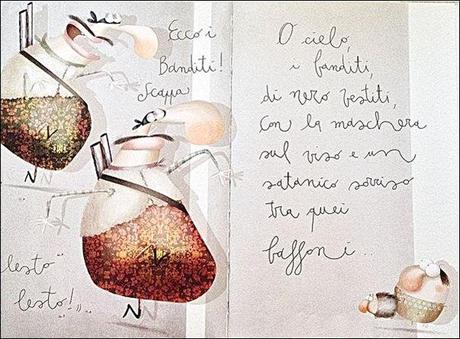 Ecco i
Banditi!
Scappa
lesto
lesto!
O cielo,
i banditi,
di nero vestiti,
con la maschera
sul viso e un
satanico sorriso
tra quei
baffoni...